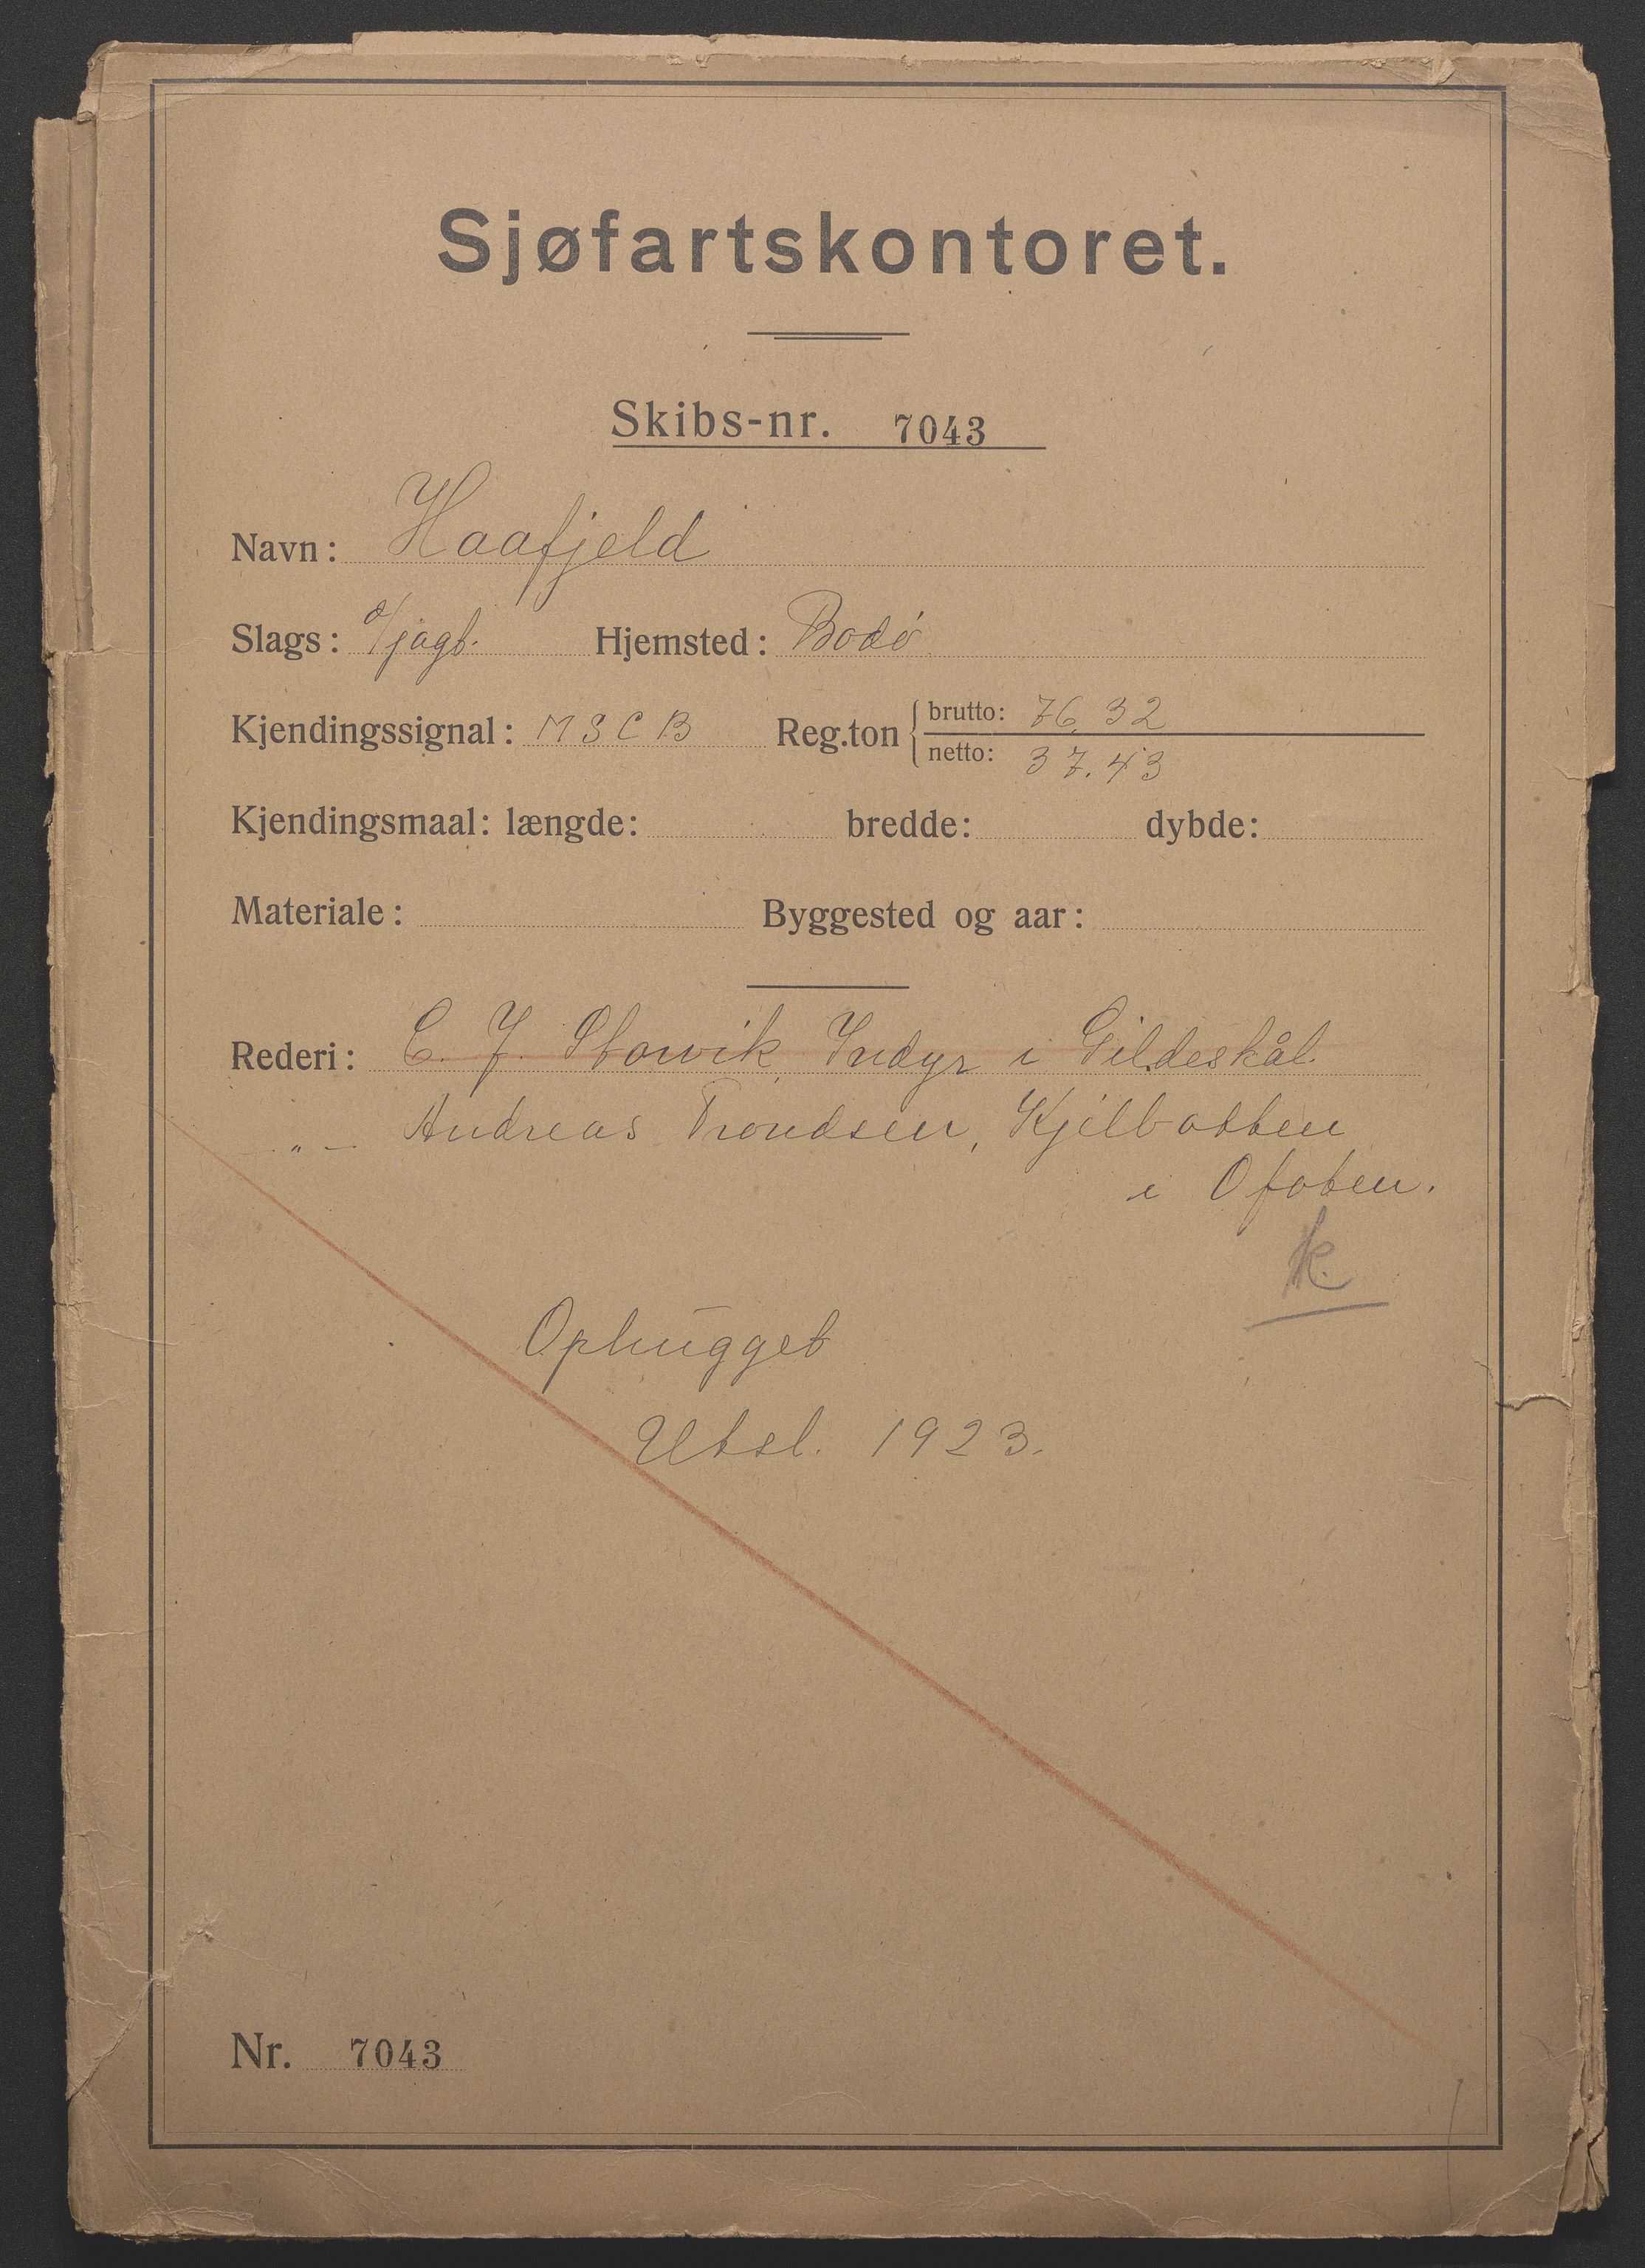 Sjøfartskontoret.
Skibs-nr. 7043
Navn: Haafjeld
Slags: d/jagt. Hjemsted: Bodø
Kjendingssignal: MSCB Reg.ton brutto: 76.32
netto: 37.43
Kjendingsmaal: længde: bredde: dybde:
Materiale: Byggested og aar:
Rederi: C. J. Storvik, Indyr i Gildeskål.
-"- Andreas Trondsen, Kjelbotten
i Ofoten.
K.
Ophugget
Utsl. 1923.
Nr. 7043